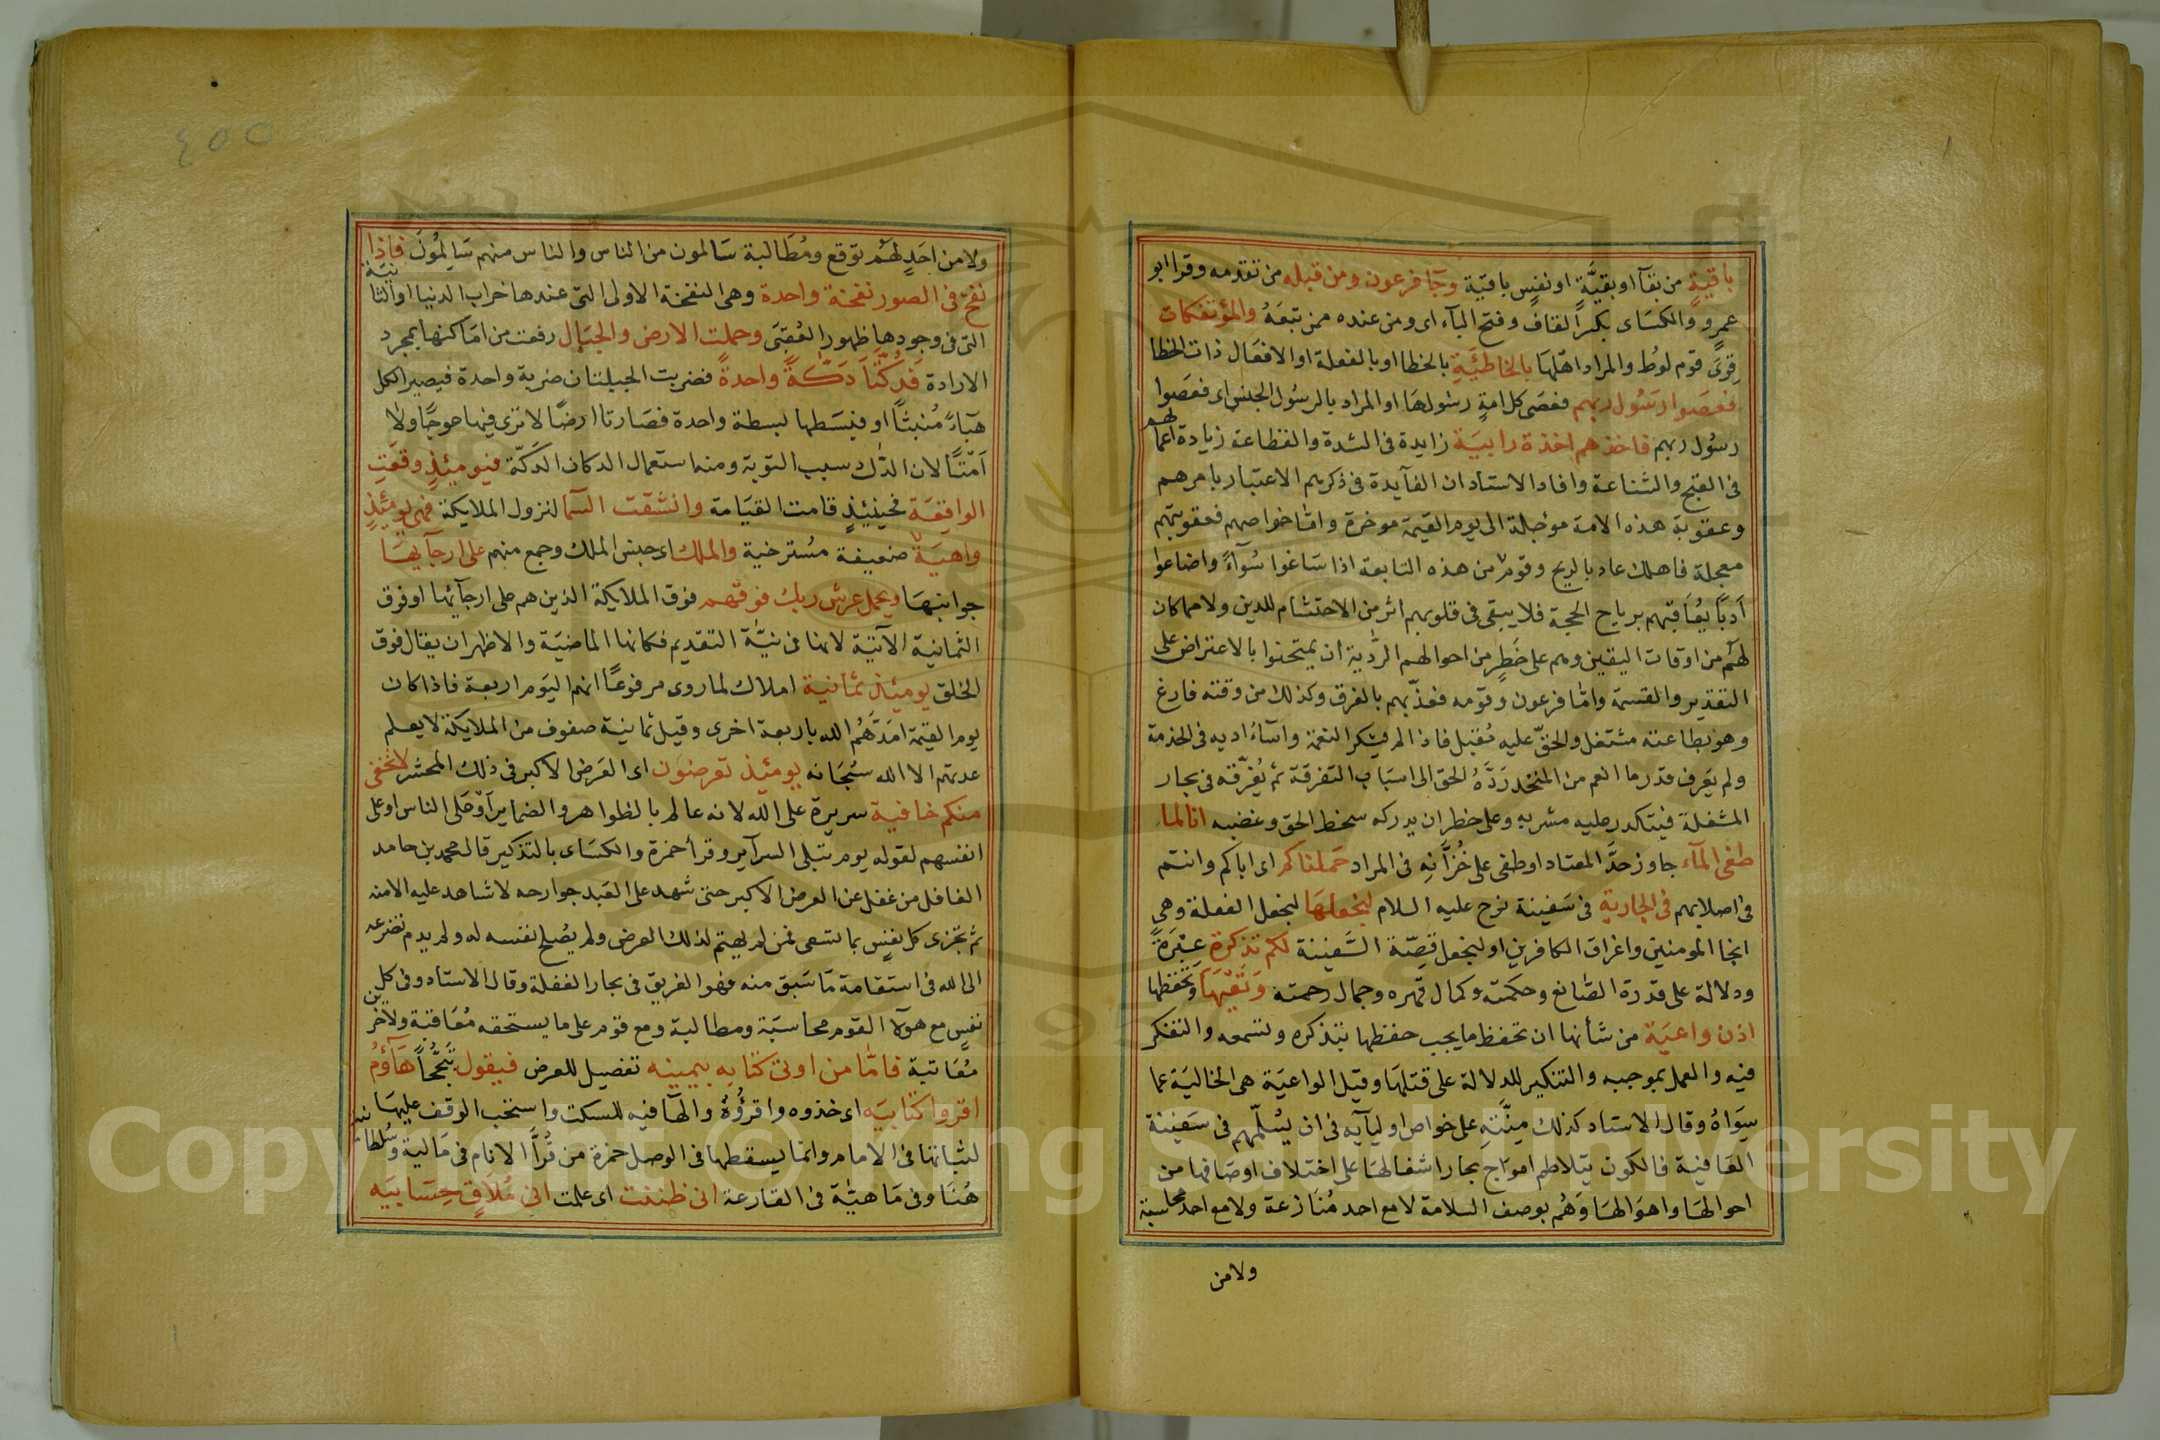 باقية من بقآ او بقيّة او نفس باقية وجآ فرعون ومن قبله من تقدمه وقرا ابو
عمرو والكسآى بكسر القاف وفتح البآء اى ومن عنده ممن تبعه والمؤتفكات
قرى قوم لوط والمراد اهلها بالخاطئة بالخطا او بالفعلة او الافعال ذات الخطا
فعصوا رسول ربهم فعصى كل امة رسولها او المراد بالرسول الجنس اى فعصوا
رسول ربهم فاخذهم اخذة رابية زايدة فى الشدة والفظاعة زيادة اعمالهم
فى القبح والشناعة وافاد الاستاد ان الفآيدة فى ذكرهم الاعتبار بامرهم
وعقوبة هذه الامة مؤجلة الى يوم القيمة موخرة واما خواصهم فعقوبتهم
معجلة فاهلك عاد بالريح وقوم من هذه التابعة اذا ساغوا سوآء واضاعوا
ادبا يعاقبهم برياح الحجبة فلا يبقى فى قلوبهم اثر من الاحتشام للدين ولا مما كان
لهم من اوقات اليقين وهم على خطر من احوالهم الردية ان يمتحنوا بالاعتراض على
التقدير والقسمة واما فرعون وقومه فعذبهم بالغرق وكذلك من وقته فارغ
وهو بطاعته مشتغل والحق عليه مقبل فاذا لم يشكر النعمة واسآء ادبه فى الخدمة
ولم يعرف قدر ما انعم من المنحة ردّه الحق الى اسباب التفرقة ثم يغرّقه فى بحار
المشغلة فيتكدر عليه مشربه وعلى خطر ان يدركه سخط الحق وغضبه انا لما
طغى المآء جاوز حد المعتاد او طغى على خزانه فى المراد حملناكم اى اباكم وانتم
فى اصلابهم فى الجارية فى سفينة نوح عليه السلام لنجعلها لنجعل الفعلة وهى
انجا المومنين واغراق الكافرين او لنجعل قصة السفينة لكم تذكرة عبرة
ودلالة على قدرة الصانع وحكمته وكمال قهره وجمال رحمته وتعيها وتحفظها
اذن واعية من شأنها ان تحفظ ما يجب حفظها بتذكره وتسمعه والتفكر
فيه والعمل بموجبه والتنكير للدلالة على قتلها وقيل الواعية هى الخالية عما
سواه وقال الاستاد كذلك منته على خواص اوليآيه فى ان يسلّمهم فى سفينة
العافية فالكون يتلاطم امواج بحار اشغالها على اختلاف اوصافها من
احوالها واهوالها وهم بوصف السلامة لا مع احد منازعة ولا مع احد محاسبة
ولا من
٤٥٥
ولا من احد لهم توقع ومطالبة سالمون من الناس والناس منهم سالمون فاذا
نفخ فى الصور نفخة واحدة وهى النفخة الاولى التى عندها خراب الدنيا او الثانية
التى فى وجودها ظهور العقبى وحملت الارض والجبال رفعت من اماكنها بمجرد
الارادة فدكتا دكة واحدة فضربت الجبلتان ضربة واحدة فيصير الكل
هبآء منبثا او فبسطها بسطة واحدة فصارتا ارضا لا ترى فيها عوجا ولا
امتا لان الدك سبب التوية ومنه استعمال الدكان الدكة فيومئذ وقعت
الواقعة فحينئذ قامت القيامة وانشقت السمآ لنزول الملايكة فهى يومئذ
واهية ضعيفة مسترخية والملك اى جنس الملك وجمع منهم على ارجآيها
جوانبها ويحمل عرش ربك فوقهم فوق الملايكة الذين هم على ارجآئها او فوق
الثمانية الآتية لانها فى نيّة التقديم فكانها الماضية والاظهر ان يقال فوق
الخلق يومئذ ثمانية املاك لما روى مرفوعا انهم اليوم اربعة فاذا كان
يوم القيمة امدهم الله باربعة اخرى وقيل ثمانية صفوف من الملايكة لا يعلم
عدتهم الا الله سبحانه يومئذ تعرضون اى العرض الاكبر فى ذلك المحشر لا تخفى
منكم خافية سريرة على الله لانه عالم بالظواهر والضماير او على الناس او على
انفسهم لقوله يوم تبلى السرآير وقرأ حمزة والكسآى بالتذكير قال محمد بن حامد
الغافل من غفل عن العرض الاكبر حتى شهد على العبد جوارحه لا شاهد عليه الا منه
ثم تجزى كل نفس بما تسعى فمن لم يهتم لذلك العرض ولم يصلح نفسه له ولم يدم تضرعه
الى الله فى استقامة ما سبق منه فهو الغريق فى بحار الغفلة وقال الاستاد وفى كل
نفس مع هولآ القوم محاسبة ومطالبة ومع قوم على ما يستحقه معاقبة ولآخرين
معاتبة فاما من اوتى كتابه بيمينه تفصيل للعرض فيقول تبجحا هآؤم
اقروا كتابيه اى خذوه واقرؤه والهآ فيه للسكت واستحب الوقف عليها
لثباتها فى الامام وانما يسقطها فى الوصل حمزة من قرّآ الانام فى مالية وسلطانيه
هنا وفى ماهيّة فى القارعة انى ظننت اى علمت انى ملاق حسابيه
Copyright © King Saud University